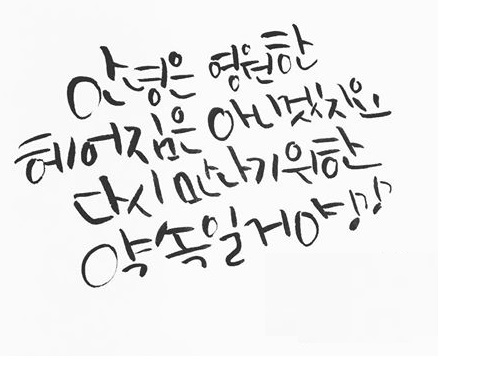 안녕은 영원한
헤어짐은 아니겠지요
다시 만나기 위한
약속일 거야!